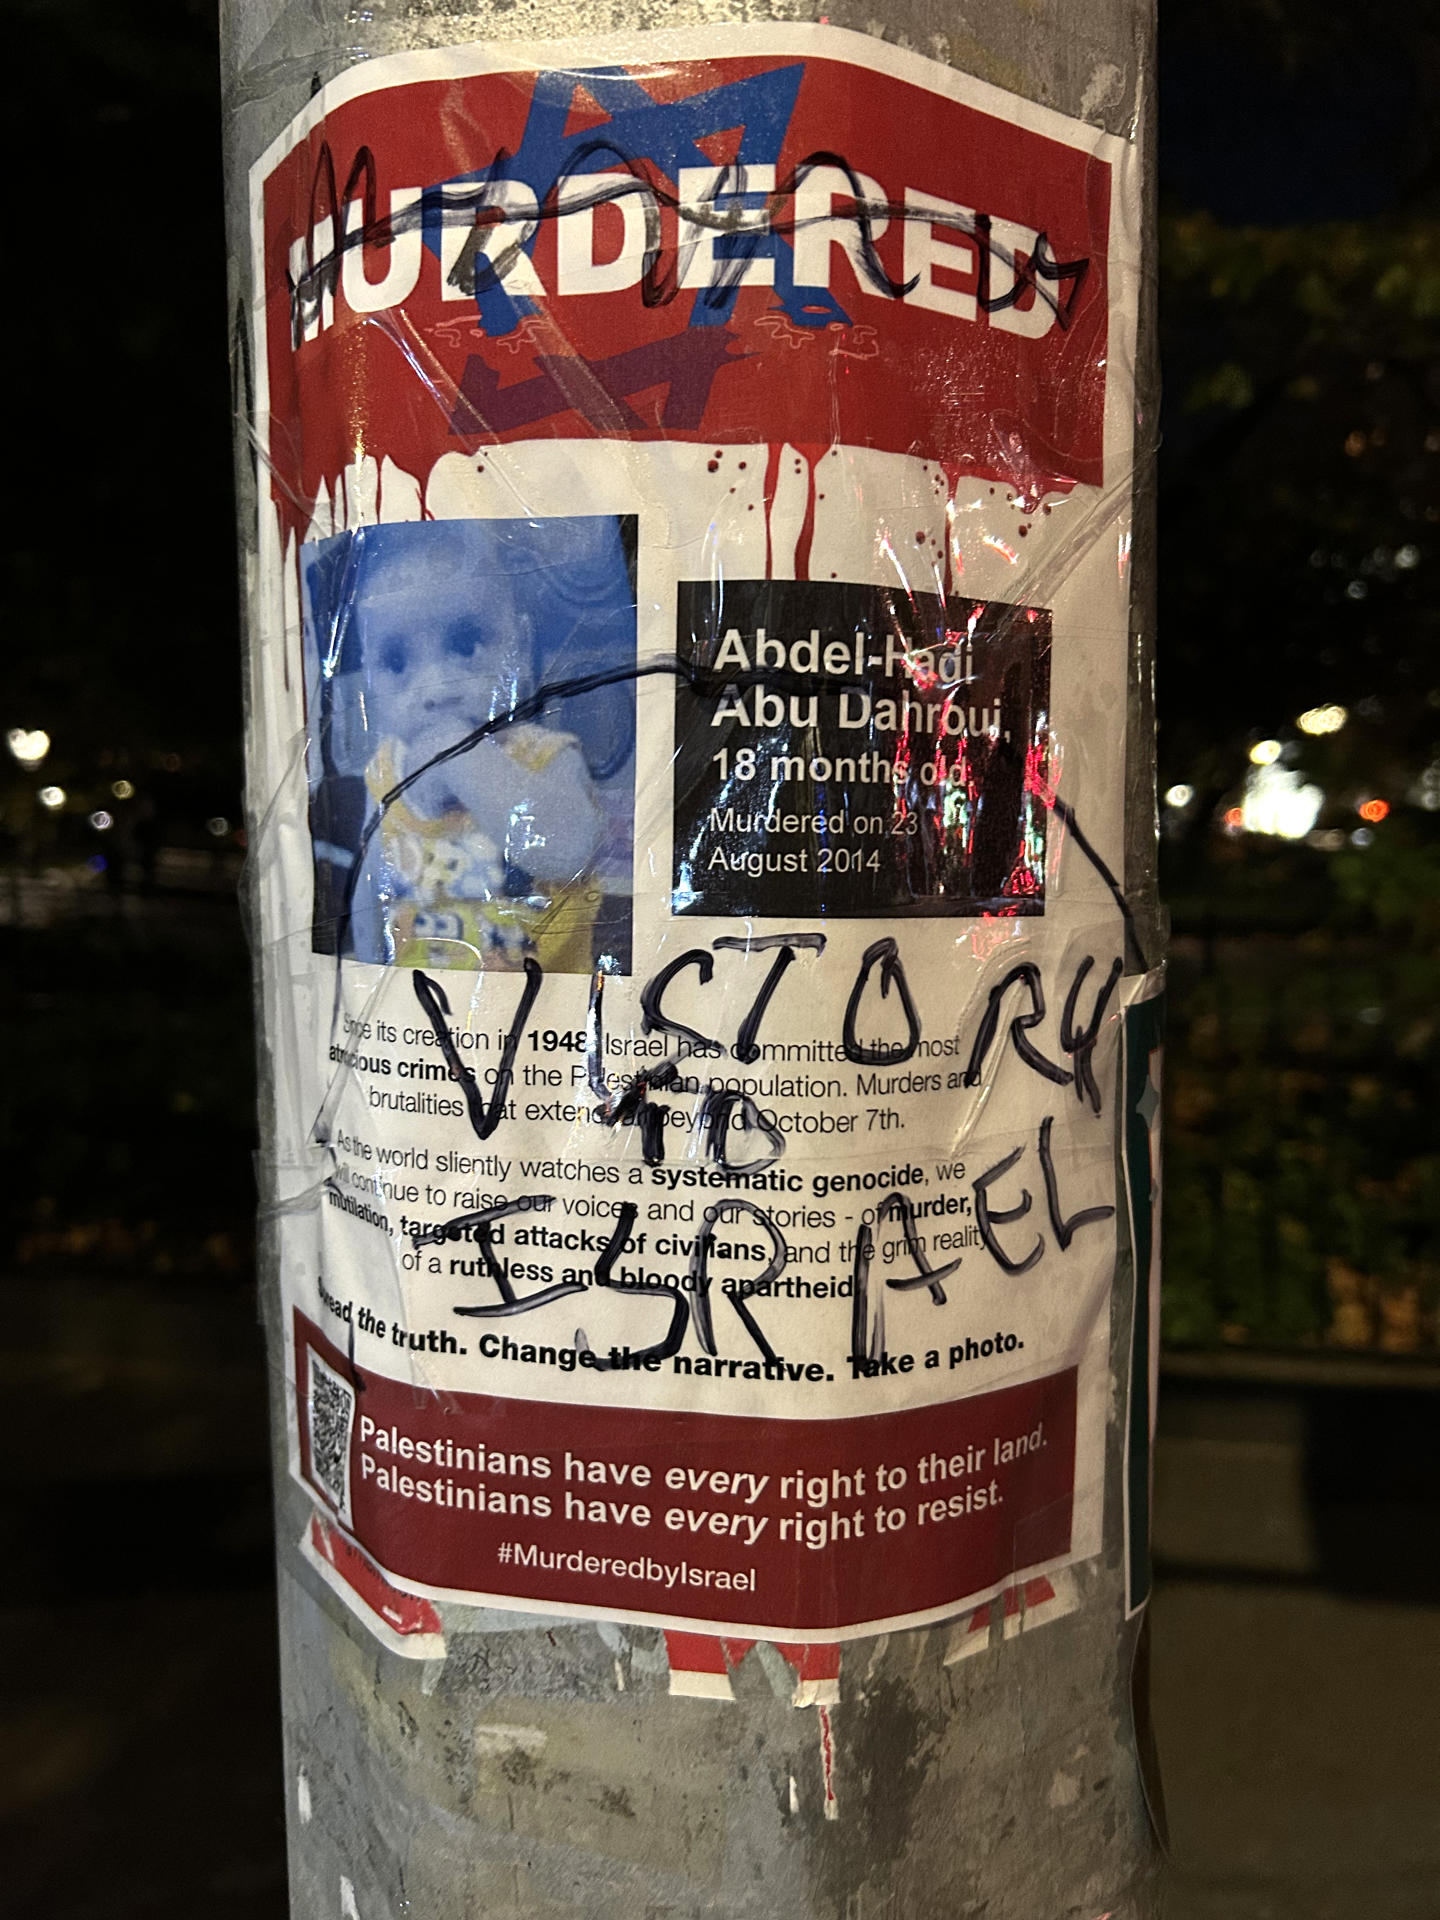 MURDERED
Abdel-Hadi
Abu Dahrouj,
18 months old.
Murdered on 23
August 2014
VICTORY
TO
ISRAEL
Since its creation in 1948, Israel has committed the most
atrocious crimes on the Palestinian population. Murders and
brutalities that extend far beyond October 7th.
As the world sliently watches a systematic genocide, we
will continue to raise our voices and our stories - of murder,
mutilation, targeted attacks of civilians, and the grim reality
of a ruthless and bloody apartheid.
Spread the truth. Change the narrative. Take a photo.
Palestinians have every right to their land.
Palestinians have every right to resist.
#MurderedbyIsrael